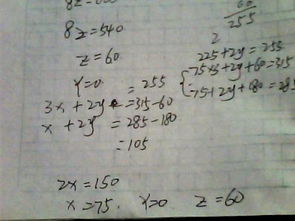 8z=540
z=60
Y=0
=255
3x+2y=315-60
x+2y=285-180
=105
2x=150
x=75. Y=0 z=60
60
255
2
225+2y=255
75×3+2y+60=315
75+2y+180=285